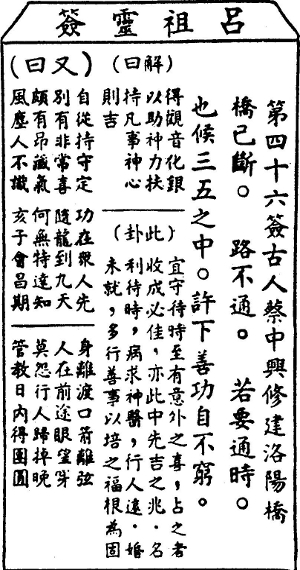 呂祖靈簽
第四十六簽古人蔡中興修建洛陽橋
橋已斷。路不通。若要通時。
也候三五之中。許下善功自不窮。
(解曰)
得觀音化銀
以助神力扶
持凡事神心
則吉
(此卦)
宜守待時至有意外之喜,占之者
收成必佳,亦此中先吉之兆.名
利待時,病求神醫,行人遠.婚
未就,多行善事以培之福根為固
(又曰)
自從持守定 功在眾人先
別有非常喜 隨龍到九天
頗有昂藏氣 何無特達知
風塵人不識 亥子會昌期
身離渡口箭離弦
人在前途眼望穿
莫怨行人歸掉晚
管教日內得團圓